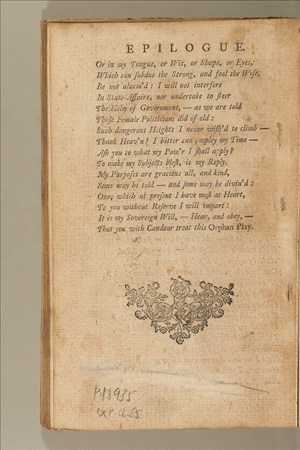 EPILOGUE.
Or in my Tongue, or Wit, or Shape, or Eyes,
Which can ſubdue the Strong, and fool the Wiſe,
Be not alarm'd: I will not interfere
In State-Affairs, nor undertake to ſteer
The Helm of Government, — as we are told
Theſe Female Politicians did of old:
Such dangerous Heights I never wiſh'd to climb —
Thank Heav'n! I better can employ my Time —
Aſk you to what my Pow'r I ſhall apply?
To make my Subjects bleſt, is my Reply.
My Purpoſes are gracious all, and kind,
Some may be told — and ſome may be divin'd:
One, which at preſent I have moſt at Heart,
To you without Reſerve I will impart:
It is my Sovereign Will, — Hear, and obey, —
That you with Candour treat this Orphan Play.